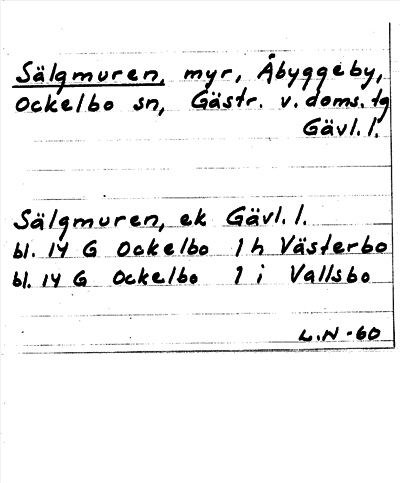 Sälgmuren, myr, Åbyggeby,
Ockelbo sn, Gästr. v. doms. tg
Gävl. l.
Sälgmuren, ek Gävl. l.
bl. 14 G Ockelbo 1 h Västerbo
bl. 14 G Ockelbo 1 i Vallsbo
L.N -60